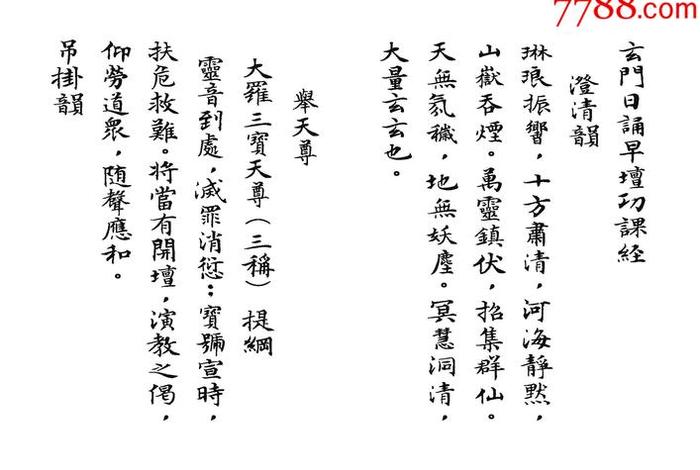 7788.com
玄門日誦早壇功課經
澄清韻
琳琅振響，十方肅清，河海靜默，
山嶽吞煙。萬靈鎮伏，招集群仙。
天無氛穢，地無妖塵。冥慧洞清，
大量玄玄也。
舉天尊
大羅三寶天尊（三稱）提綱
靈音到處，滅罪消愆；寶號宣時，
扶危救難。將當有開壇，演教之偈，
仰勞道眾，随聲應和。
吊掛韻